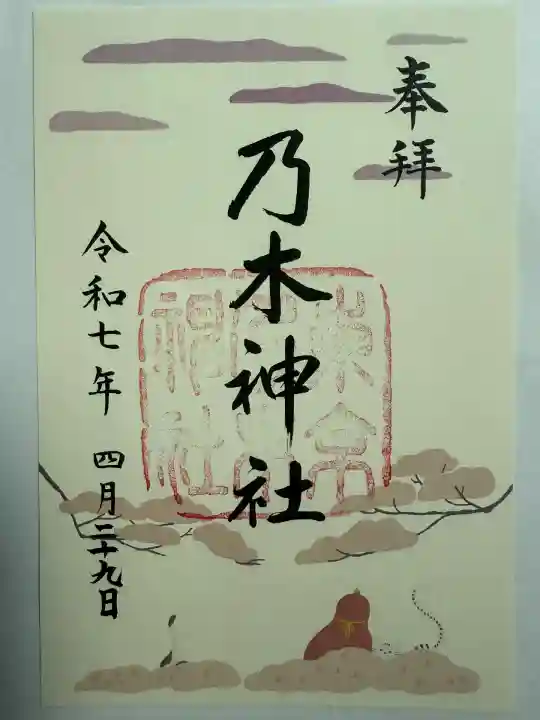 奉拝
乃木神社
東京
乃木
神社
令和七年 四月二十九日